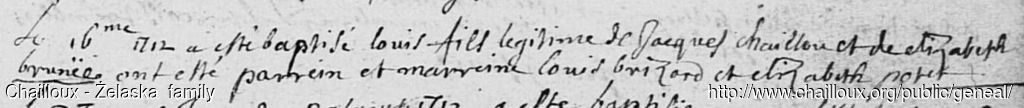 Le 16me 1712 a esté baptisé louis fils legitime de Jacques chaillou et de elizabeth
brunëe ont esté parrein et marreine louis brizard et elizabeth potet
1712 a este baptisé
Chailloux - Zelaska family
http://www.chailloux.org/public/geneal/